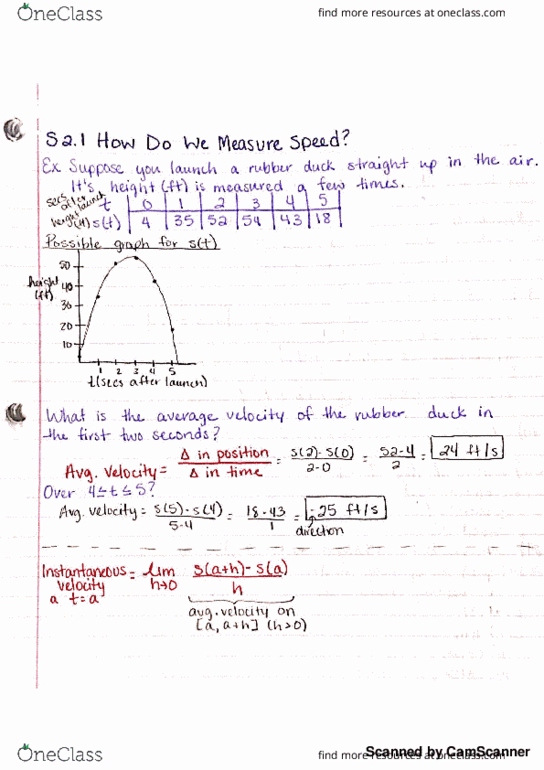 OneClass
find more resources at oneclass.com
S2.1 How Do We Measure Speed?
Ex Suppose you launch a rubber duck straight up in the air.
It's height (ft) is measured a few times.
secs after launch t | 0 | 1 | 2 | 3 | 4 | 5
height (ft) s(t) | 4 | 35 | 52 | 54 | 43 | 18
Possible graph for s(t)
height (ft)
50
40
30
20
10
1 2 3 4 5
t(secs after launch)
What is the average velocity of the rubber duck in
the first two seconds?
Avg. velocity = Δ in position / Δ in time = s(2)-s(0) / 2-0 = 52-4 / 2 = 24 ft/s
Over 4≤t≤5?
Avg. velocity = s(5)-s(4) / 5-4 = 18-43 / 1 = -25 ft/s
direction
Instantaneous velocity a t=a = lim h→0 s(a+h)-s(a) / h
avg. velocity on
[a, a+h] (h>0)
Scanned by CamScanner
OneClass
find more resources at oneclass.com